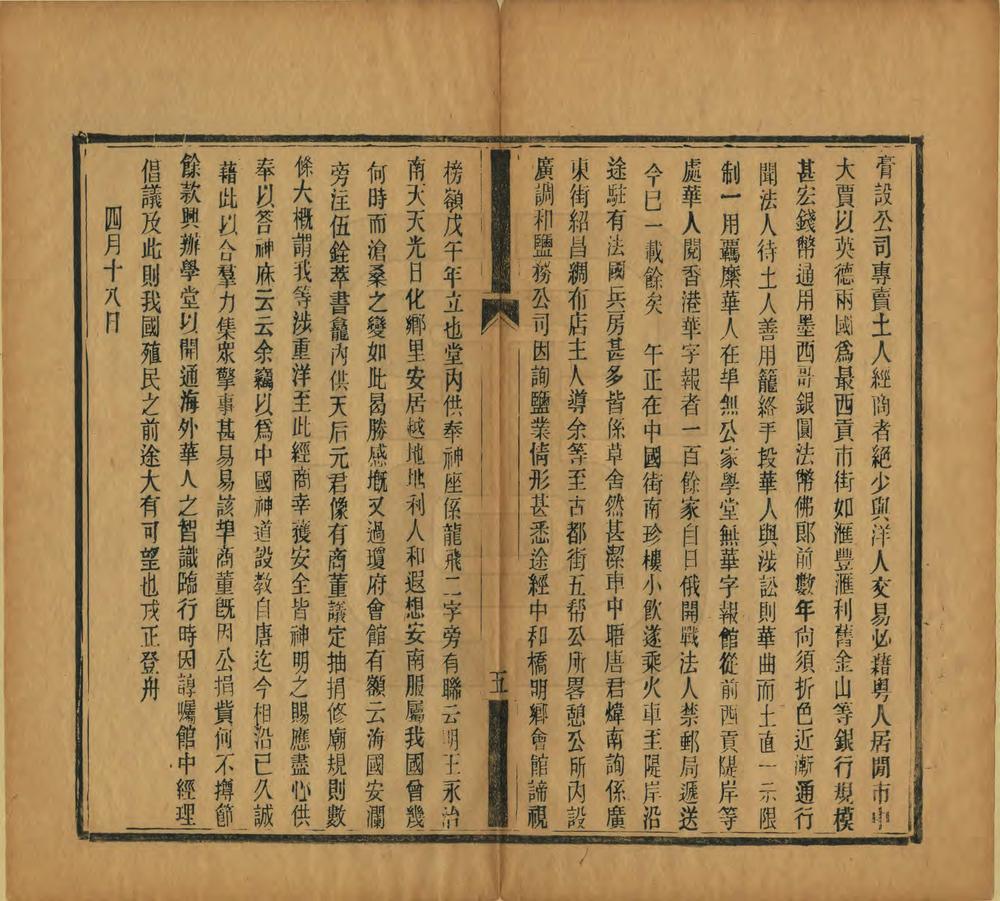 膏設公司專賣土人經商者絕少與洋人交易必藉粵人居閒市中
大賈以英德兩國爲最西貢市街如滙豐滙利舊金山等銀行規模
甚宏錢幣通用墨西哥銀圓法幣佛郎前數年尙須折色近漸通行
聞法人待土人善用籠絡手段華人與涉訟則華曲而土直一示限
制一用羈縻華人在埠無公家學堂無華字報館從前西貢隄岸等
處華人閱香港華字報者一百餘家自日俄開戰法人禁郵局遞送
今已一載餘矣　午正在中國街南珍樓小飲遂乘火車至隄岸沿
途駐有法國兵房甚多皆係草舍然甚潔車中晤唐君煒南詢係廣
東街紹昌綢布店主人導余等至古都街五帮公所畧憩公所內設
廣調和鹽務公司因詢鹽業情形甚悉途經中和橋明鄉會館諦視
五
榜額戊午年立也堂內供奉神座係龍飛二字旁有聯云明王永治
南天天光日化鄉里安居越地地利人和遐想安南服屬我國曾幾
何時而滄桑之變如此曷勝感慨又過瓊府會館有額云海國安瀾
旁注伍銓萃書龕內供天后元君像有商董議定抽捐修廟規則數
條大概謂我等涉重洋至此經商幸獲安全皆神明之賜應盡心供
奉以答神庥云云余竊以爲中國神道設教自唐迄今相沿已久誠
藉此以合羣力集眾擎事甚易易該埠商董旣因公捐貲何不撙節
餘款興辦學堂以開通海外華人之智識臨行時因諄囑館中經理
倡議及此則我國殖民之前途大有可望也戌正登舟
四月十八日